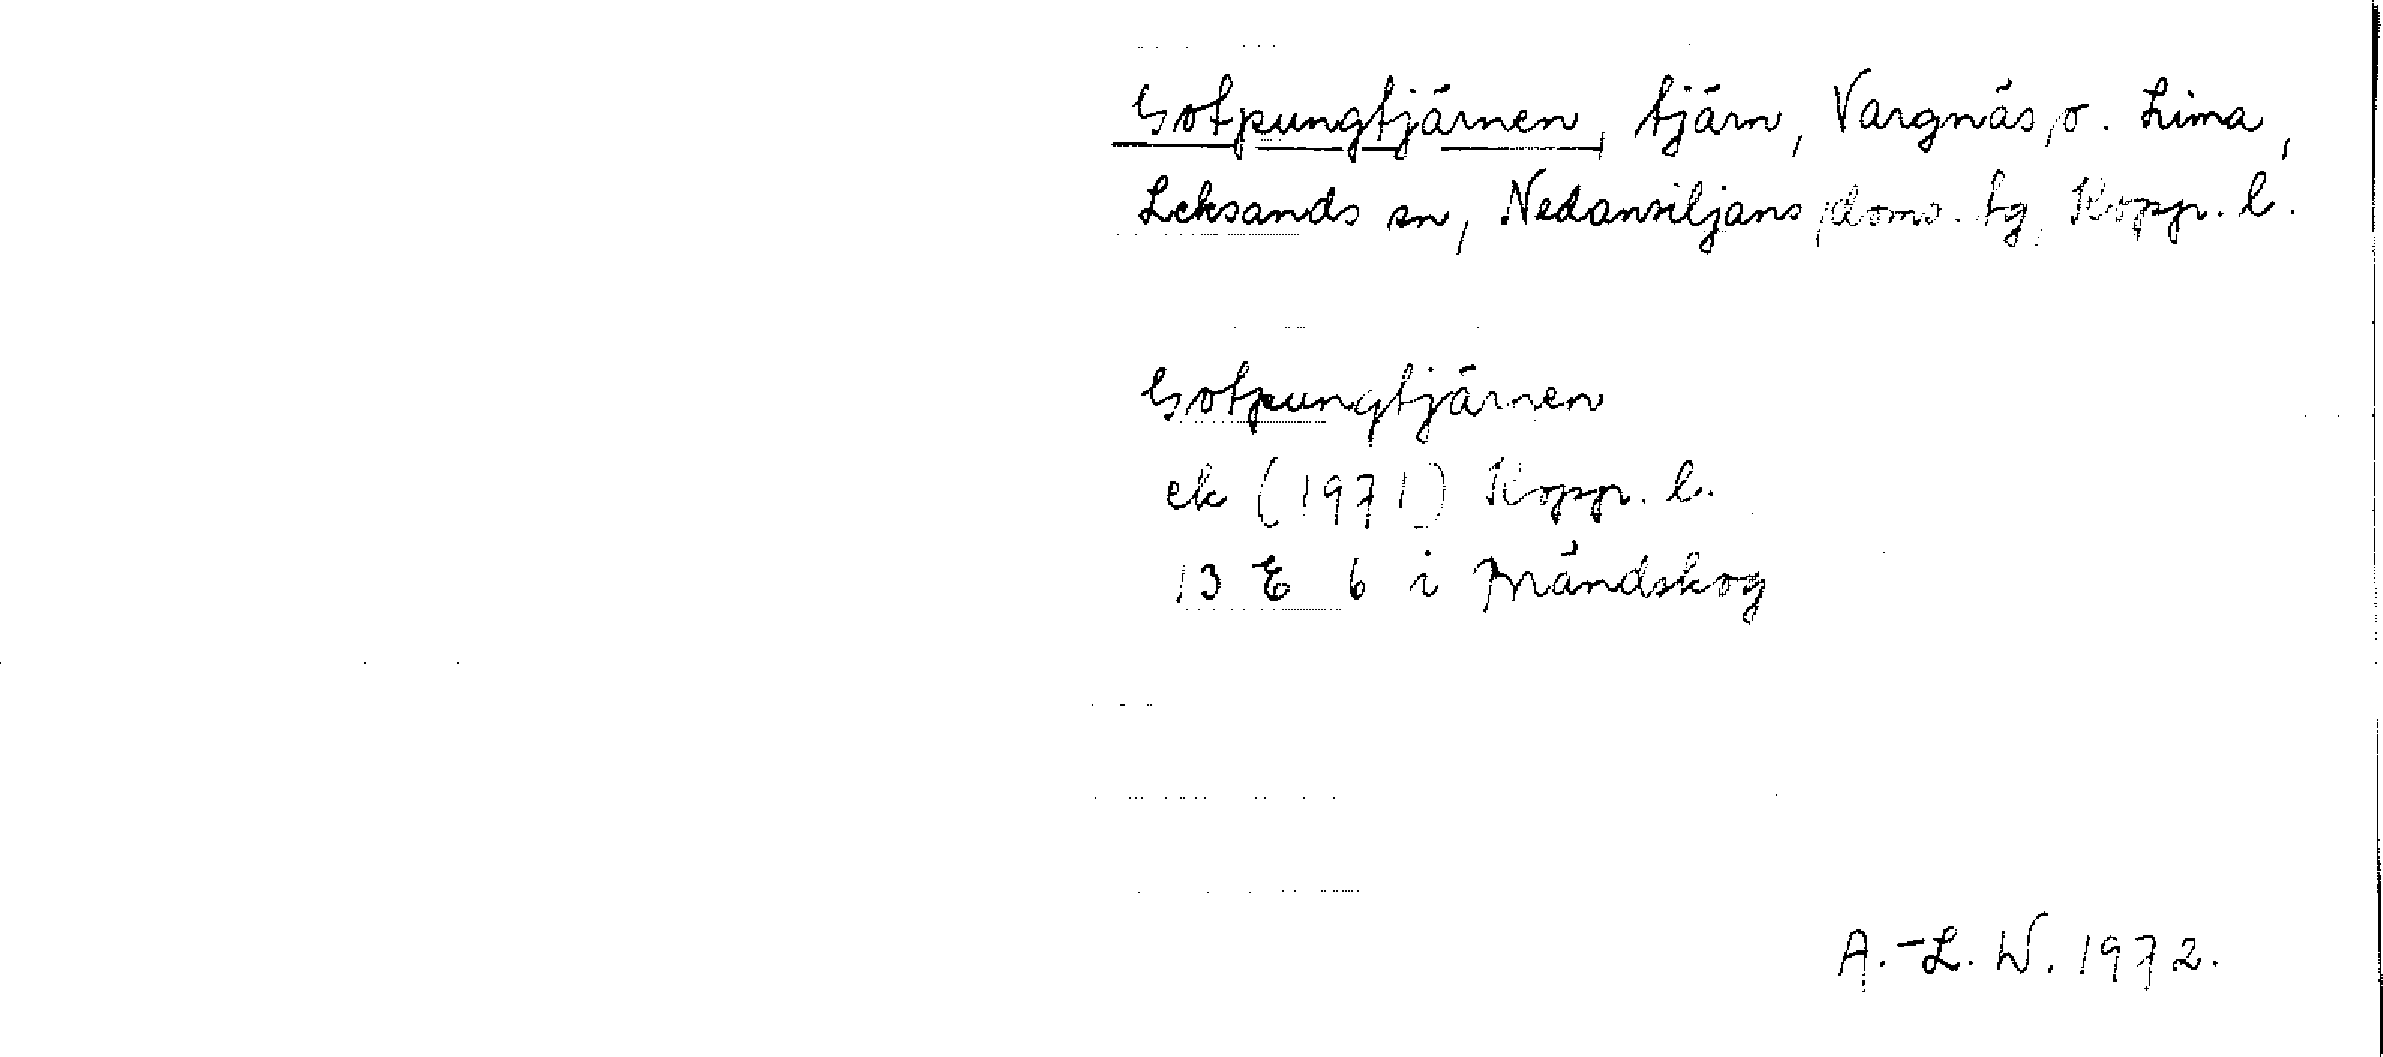 Gotpungtjärnen, tjärn, Vargnäs, o. Lima,
Leksands sn, Nedansiljans doms. tg, Kopp. l.
Gotpungtjärnen
ek (1971) Kopp. l.
13 E 6 i Brändskog
A.-L. W. 1972.